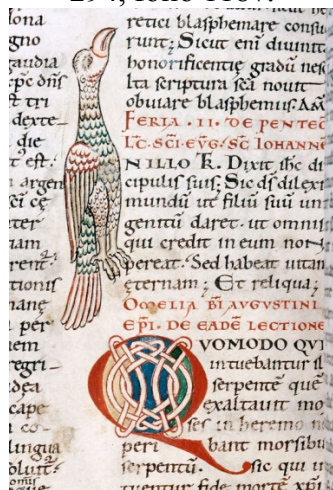 294, folio 118v.
ona
gno
audia
cpc dñs
t tri
dexte
die
t est.
argen
sci ce
ter
iam
rent.
tionis
mane
per
em
regri
dea
cape
a co
lingua
oluit.
retici blasphemare consu
runt; Sicut eni diuinit
honorificentie gradu nes
lta scriptura sea nouit
obuiare blasphemus. Aꝶ
FERIA . II . DE PENTEC
LC. SCI. EVG. SC IOHANNE
IN ILLO ƚ. Dixit ihc di
cipulis suis; Sic ds dilexi
mundū ut filiū suū un
genitū daret. ut omnis
qui credit in eum non
pereat. Sed habeat uitam
eternam; Et reliqua;
OMELIA BI AVGVSTINI
EPI. DE EADĒ LECTIONE
QVOMODO QVI
intuebantur il
serpentē quē
exaltauit mo
ses in heremo n
peri bant morsibu
serpentū. sic qui in
tuentur fide mortē xpi